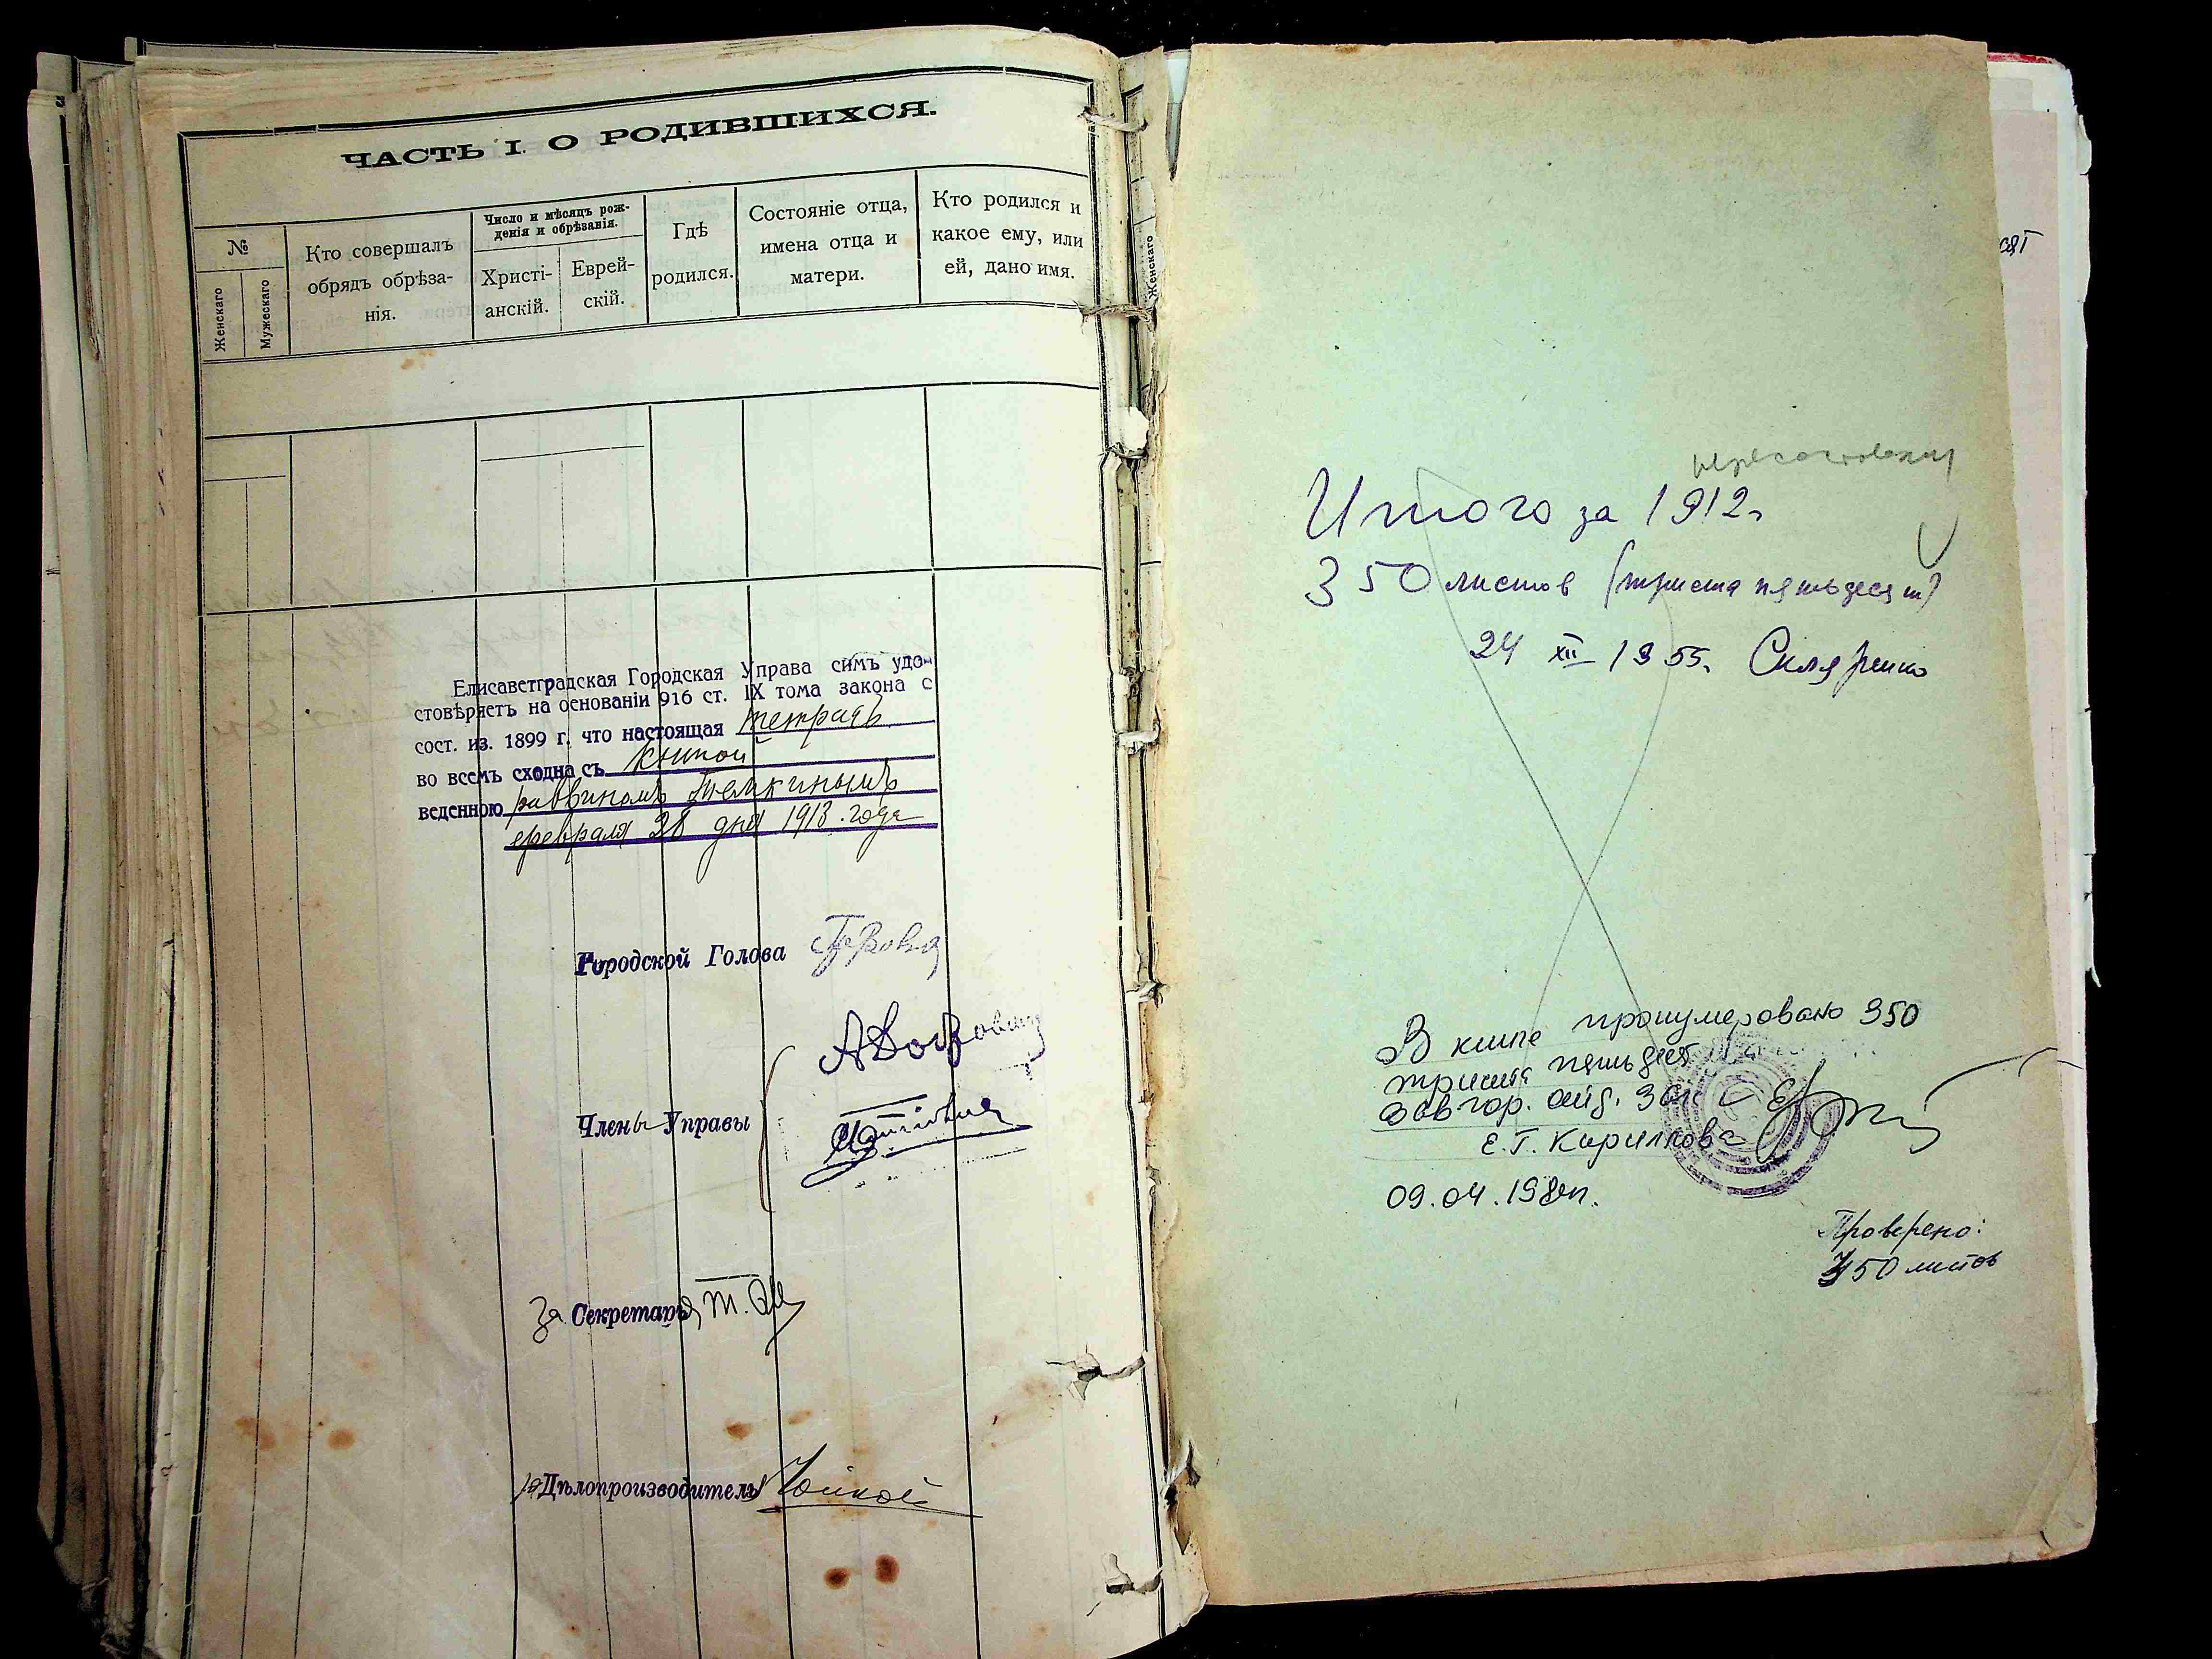 ЧАСТЬ I. О РОДИВШИХСЯ.
№
Женскаго
Мужескаго
Кто совершалъ
обрядъ обрѣза-
нія.
Число и мѣсяцъ рож-
денія и обрѣзанія.
Христі-
анскій.
Еврей-
скій.
Гдѣ
родился.
Состояніе отца,
имена отца и
матери.
Кто родился и
какое ему, или
ей, дано имя.
Елисаветградская Городская Управа симъ удо-
стовѣряетъ на основаніи 916 ст. IX тома закона с
сост. из. 1899 г. что настоящая тетрадь
во всемъ сходна съ книгой
веденною раввиномъ
февраля 28 дня 1913 года
Городской Голова
Члены Управы
За Секретаря
Дѣлопроизводитель
Женскаго
Итого за 1912г
350 листов (триста пятьдесят)
24 XII 1955г. Скляренко
В книге пронумеровано 350
триста пятьдесят
Зав гор. отд. ЗАГС
Е.Г. Кирилкова
09.04.198
Проверено:
350 листов